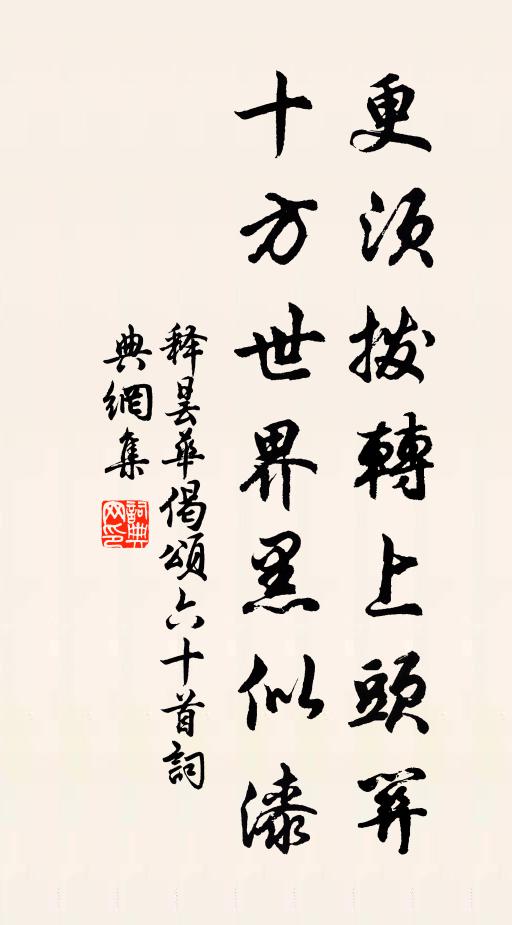 更須拨轉上頭關
十方世界黑似漆
释曇華偈頌六十首詞
典網集
詞典网印